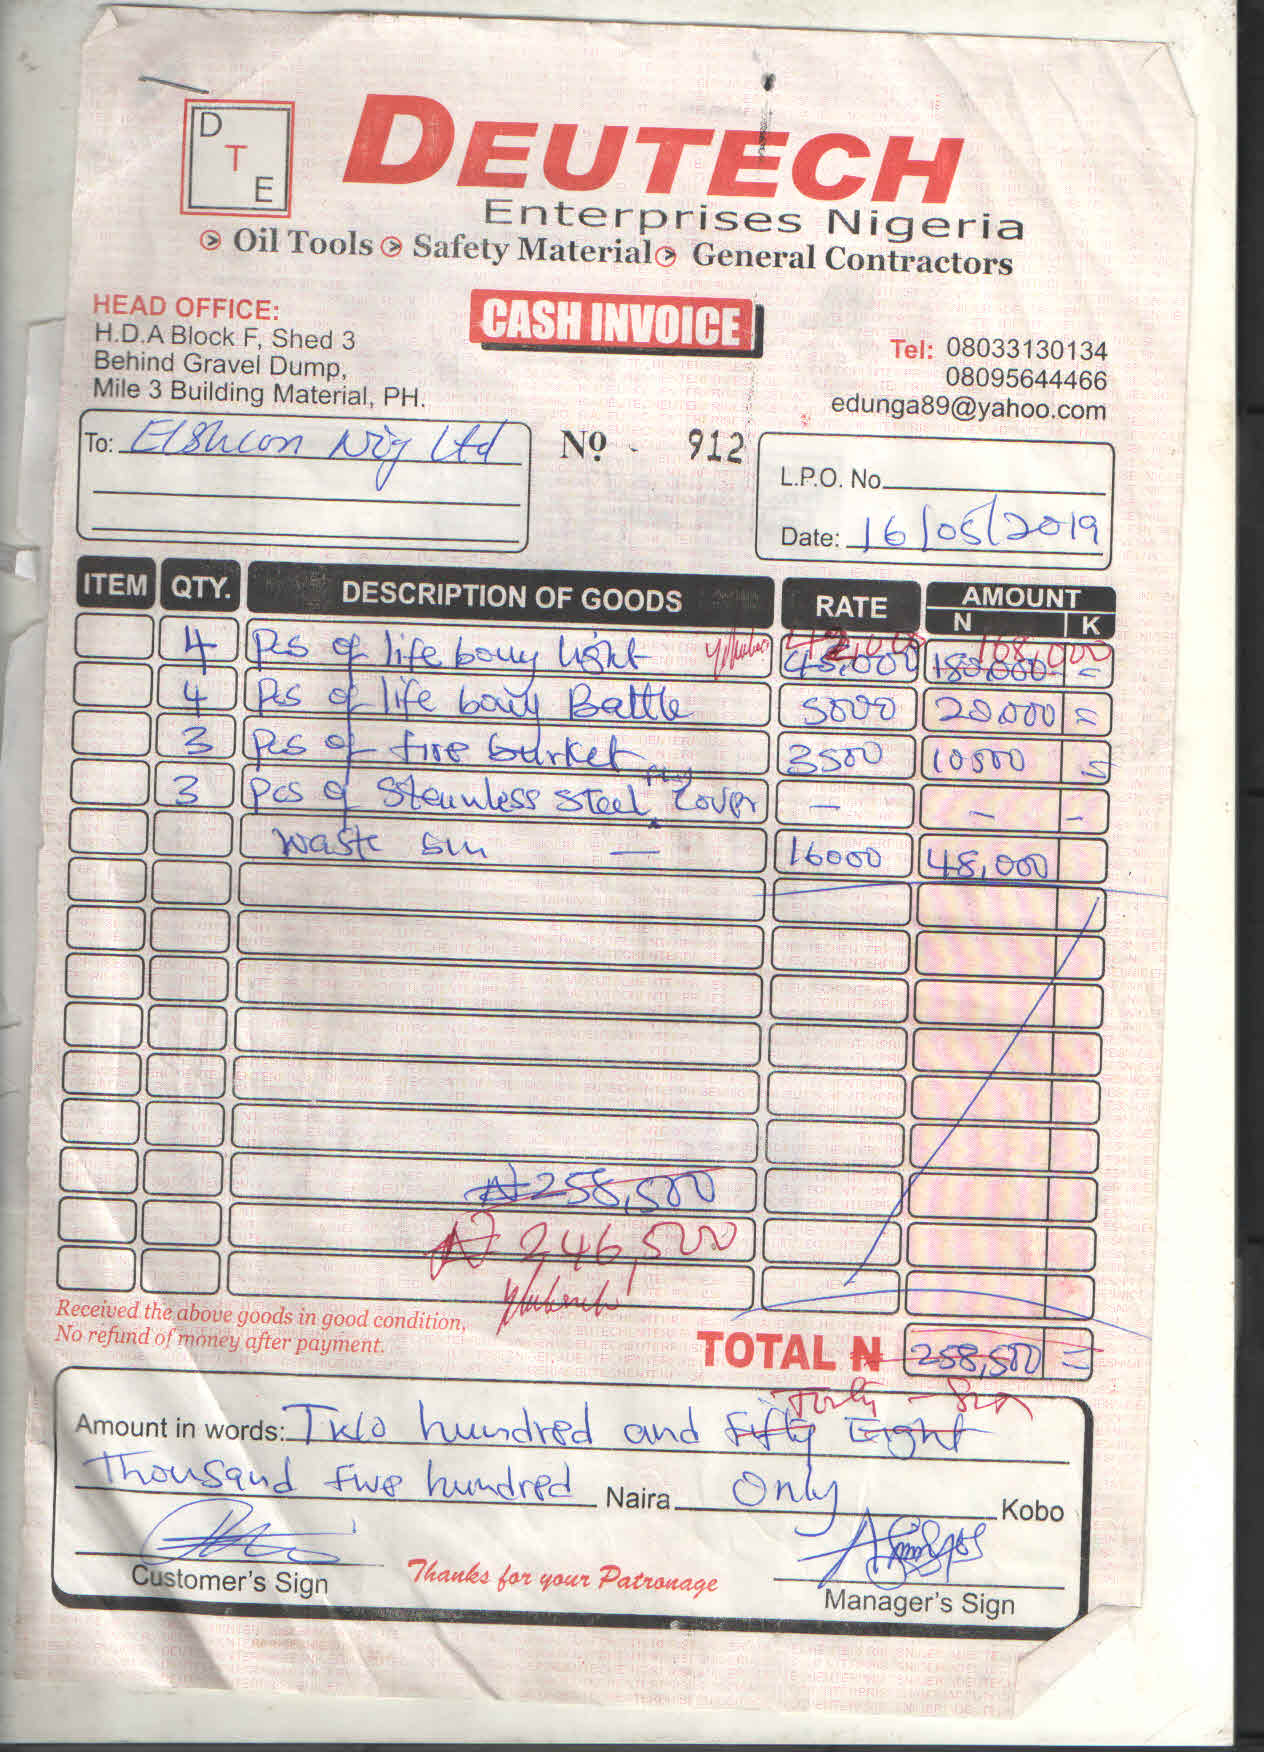 D
T
E
DEUTECH
Enterprises Nigeria
Oil Tools Safety Material General Contractors
HEAD OFFICE:
H.D.A Block F, Shed 3
Behind Gravel Dump,
Mile 3 Building Material, PH.
CASH INVOICE
Tel: 08033130134
08095644466
edunga89@yahoo.com
To: Elshcon Nig Ltd
No 912
L.P.O. No.
Date: 16/05/2019
ITEM QTY. DESCRIPTION OF GOODS RATE AMOUNT
N K
42,000 168,000
4 Pcs of life bouy light 45,000 180,000 =
4 Pcs of life bouy Battle 5000 20,000 =
3 Pcs of fire burket 3500 10500 =
3 Pcs of Stainless Steel Cover — — -
waste — 16000 48,000
₦258,500
₦246,500
Received the above goods in good condition,
No refund of money after payment.
TOTAL ₦ 258,500 =
Forty - Six
Amount in words: Two hundred and fifty Eight
Thousand five hundred Naira Only Kobo
Customer's Sign
Thanks for your Patronage
Manager's Sign